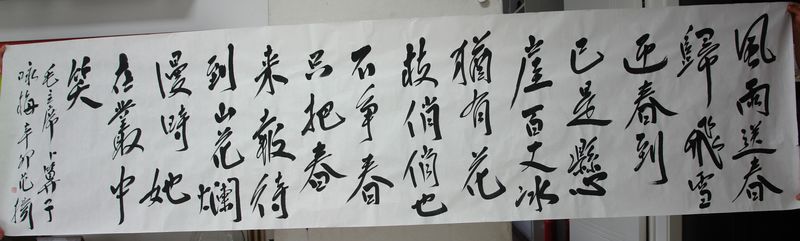 風雨送春
歸飛雪
迎春到
已是懸
崖百丈冰
猶有花
枝俏俏也
不爭春
只把春
来報待
到山花爛
漫時她
在叢中
笑
毛主席卜算子
咏梅辛卯